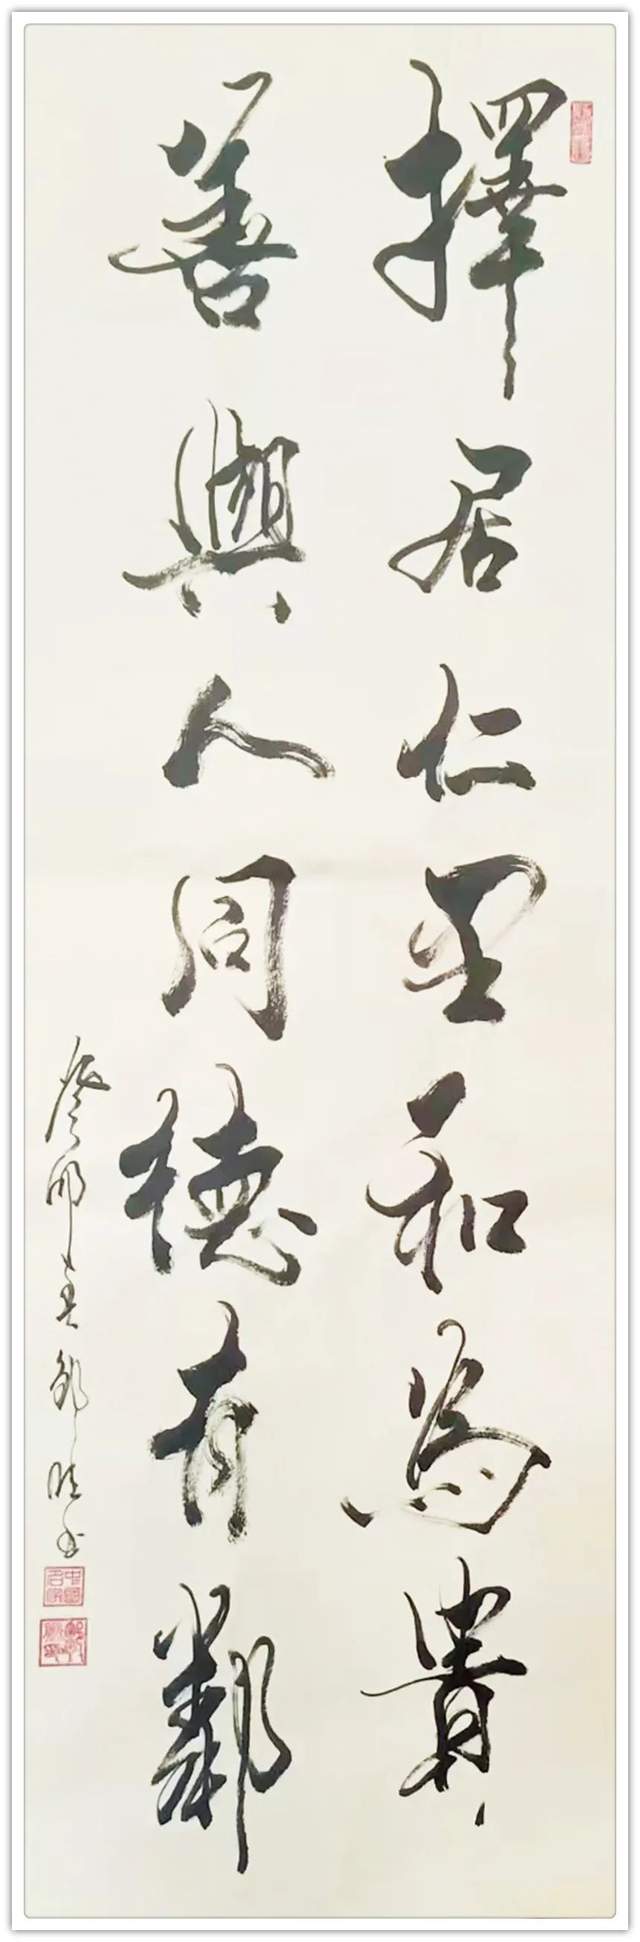 擇居仁里和為貴
善與人同德有鄰
癸卯春